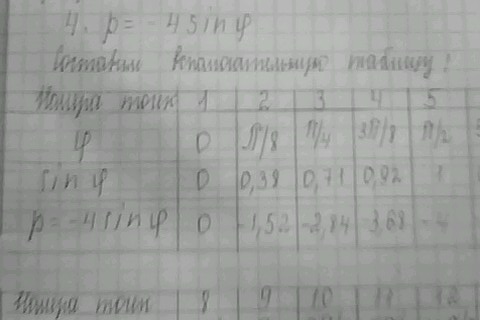 4. ρ = -4 sin φ
Составим вспомогательную таблицу:
Номера точек 1 2 3 4 5
φ 0 π/8 π/4 3π/8 π/2
sin φ 0 0,38 0,71 0,92 1
ρ = -4 sin φ 0 -1,52 -2,84 -3,68 -4
Номера точек 8 9 10 11 12